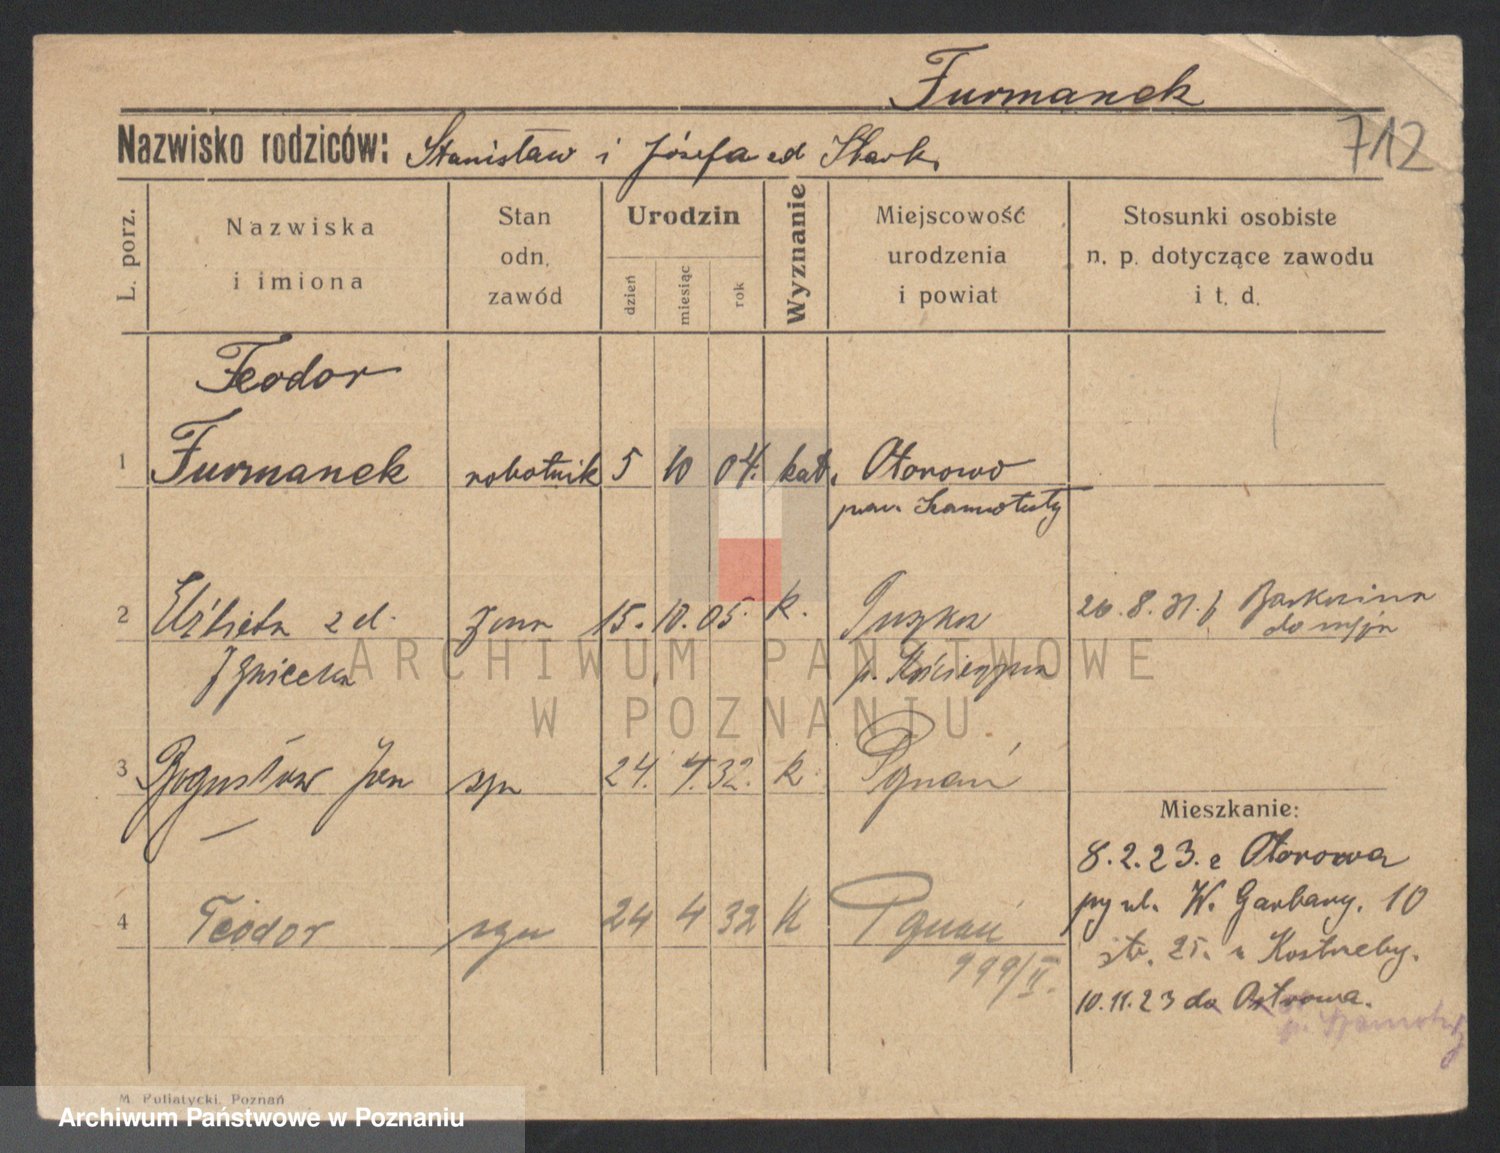 Furmanek
712
Nazwisko rodziców: Stanisław i Józefa
L. porz.
Nazwiska
i imiona
Stan
odn.
zawód
Urodzin
dzień
miesiąc
rok
Wyznanie
Miejscowość
urodzenia
i powiat
Stosunki osobiste
n. p. dotyczące zawodu
i t. d.
Teodor
1 Furmanek robotnik 5 10 04. kat. Otorowo
pow. Szamotuły
2 Elżbieta z d. żona 15. 10. 05. k. 26. 8. 31.
p. Kościerzyna
3 Bogusław Jan syn 24. 4. 32. k Poznań
4 Teodor syn 24 4 32 K Poznań
999/II.
Mieszkanie:
8.2.23. z Otorowa
przy ul. W. Garbary. 10
str. 25. u Kostrzeby.
10.11.23 do
p. Szamotuły
ARCHIWUM PAŃSTWOWE
W POZNANIU
M. Pullatycki, Poznań
Archiwum Państwowe w Poznaniu